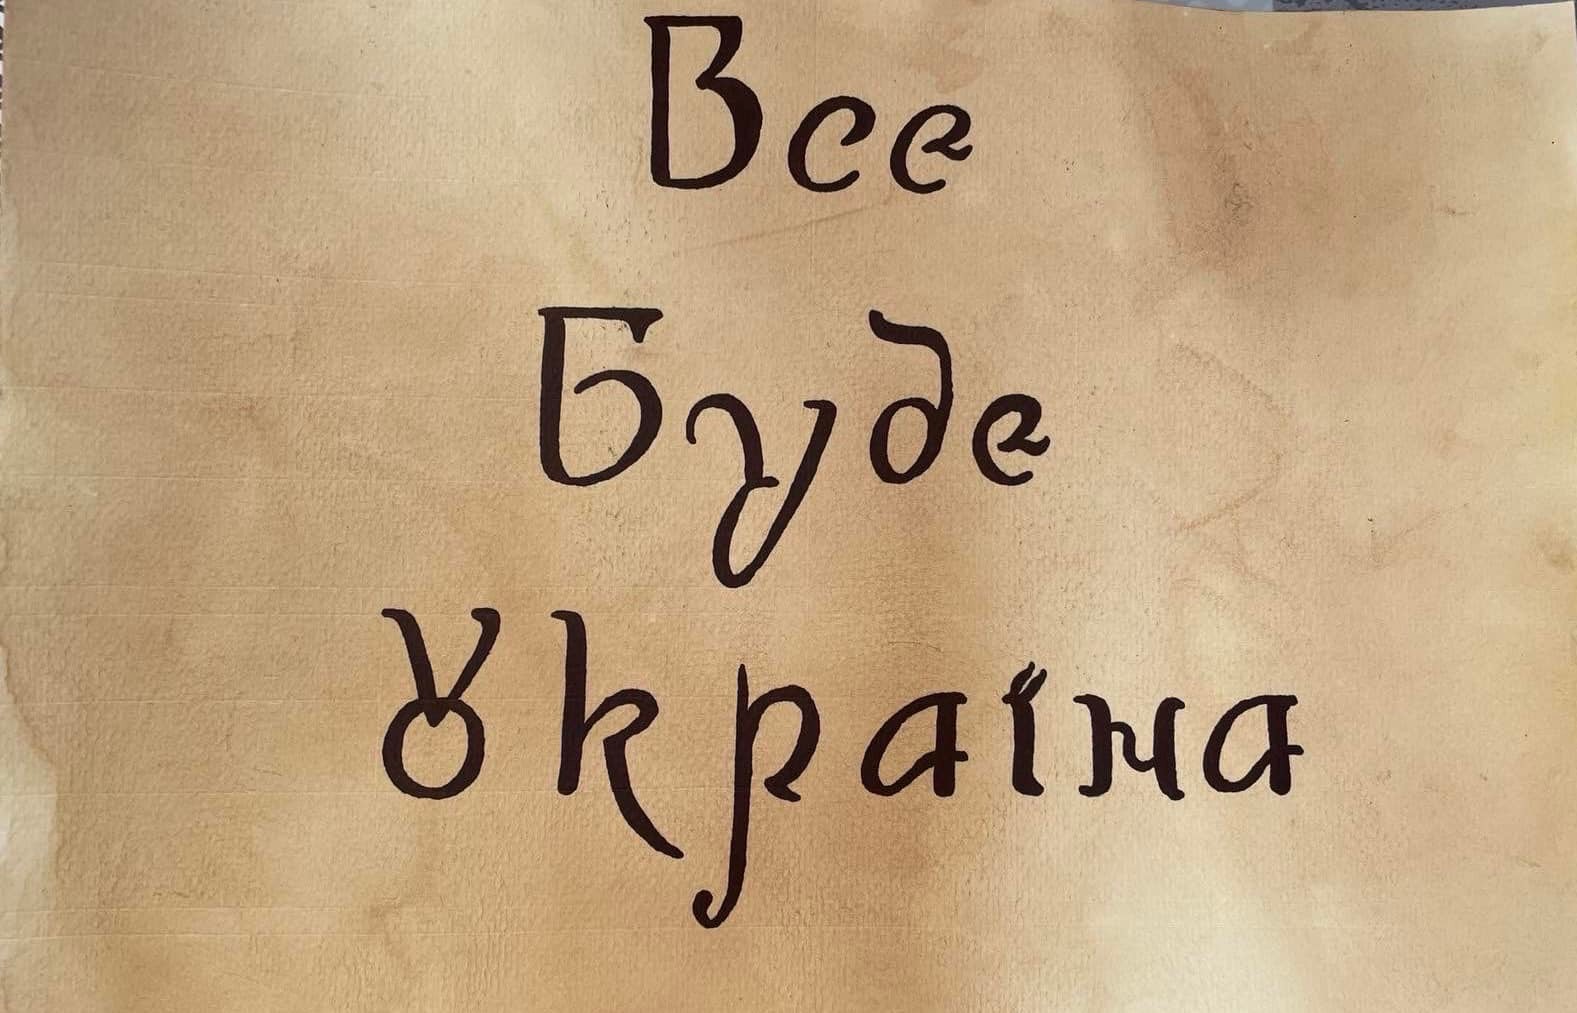 Все
Буде
Україна